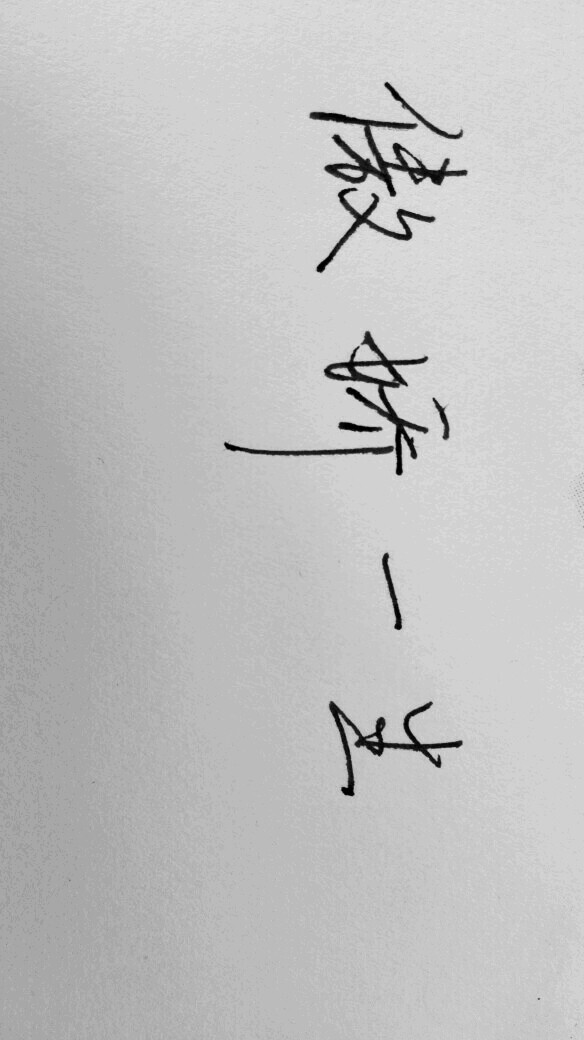 傲娇一生